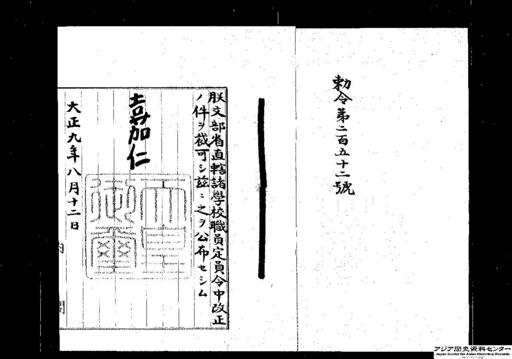 勅令第二百五十二號
朕文部省直轄諸學校職員定員令中改正
ノ件ヲ裁可シ茲ニ之ヲ公布セシム
嘉仁
天皇御璽
大正九年八月十二日
内閣
アジア歴史資料センター
Japan Center for Asian Historical Records